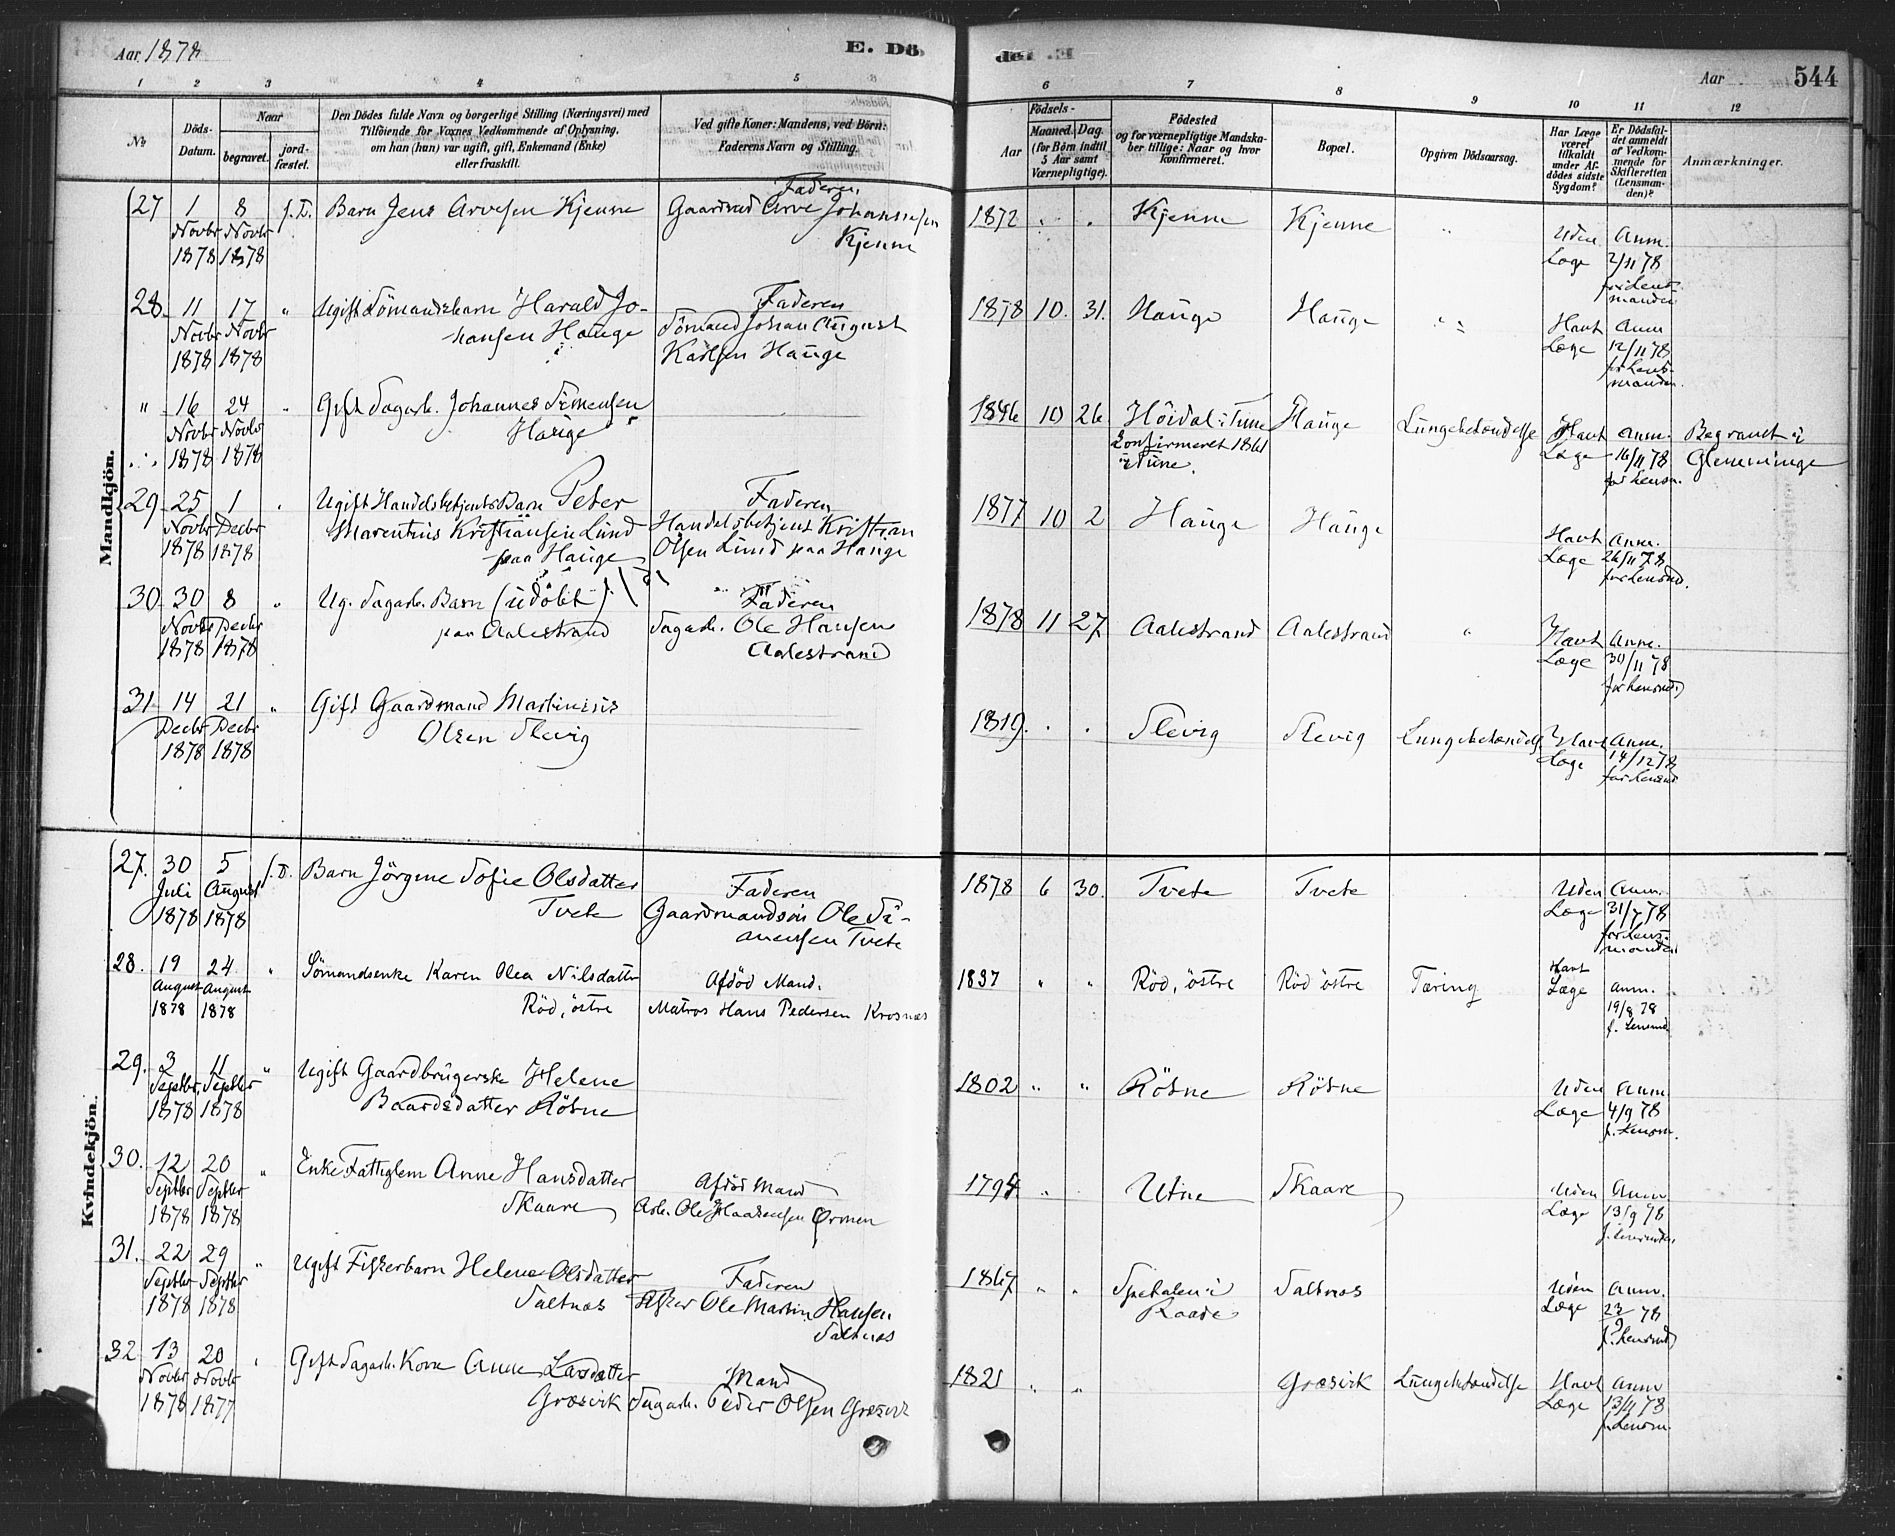 Aar 1878 E. Dö de. Aar 544
1 2 3 4 5 6 7 8 9 10 11 12
No
Döds-Datum.
Naar
begravet.
jord-fæstet.
Den Dödes fulde Navn og borgerlige Stilling (Næringsvei) med
Tilföiende for Voxnes Vedkommende af Oplysning,
om han (hun) var ugift, gift, Enkemand (Enke)
eller fraskilt.
Ved gifte Koner: Mandens, ved Börn:
Faderens Navn og Stilling.
Födsels-
Aar
Maaned. Dag.
(for Börn indtil
5 Aar samt
Værnepligtige).
Födested
og for værnepligtige Mandska-
ber tillige: Naar og hvor
konfirmeret.
Bopæl.
Opgiven Dödsaarsag.
Har Læge
været
tilkaldt
under Af-
dödes sidste
Sygdom?
Er Dödsfal-
det anmeldt
af Vedkom-
mende for
Skifteretten
(Lensman-
den)?
Anmærkninger.
Mandkjön.
27 1 8 f.D. Barn Jens Arvesen Kjenne
Faderen
Gaardmd Arve Johannesen
Kjenne
Novbr Novbr
1878 1878
1872 " " Kjenne Kjenne "
Uden Anm.
Læge 2/11 78
for Lens-
manden
28 11 17 " Ugift Sömandsbarn Harald Jo-
hansen Hauge
Faderen
Sömand Johan August
Karlsen Hauge
Novbr Novbr
1878 1878
1878 10. 31. Hauge Hauge "
Havt Anm
Læge 12/11 78
for Lens-
manden.
" 16 24 " Gift Sagarb. Johannes Simensen
Hauge
Novbr Novbr
1878 1878
1846 10 26 Höidal i Tune Hauge Lungebetændelse
Konfirmeret 1861
i Tune.
Havt Anm.
Læge 16/11 78
for Lensm.
Begravet i
Glemminge
29 25 1 " Ugift Handelsbetjents Barn Peter
Marentius Kristiansen Lund
paa Hauge
Faderen
Handelsbetjent Kristian
Olsen Lund paa Hauge
Novbr Decbr
1878 1878
1877 10 2 Hauge Hauge
Havt Anm.
Læge 26/11 78
for Lensmd.
30 30 8 " Ug. Sagarb. Barn (udöbt)
paa Aalestrand
Faderen
Sagarb. Ole Hansen
Aalestrand
Novbr Decbr
1878 1878
1878 11 27. Aalestrand Aalestrand "
Havt Anm.
Læge 30/11 78
for Lensmd.
31 14 21 " Gift Gaardmand Martinius
Olsen Slevig
Decbr Decbr
1878 1878
1819. " " Slevig Slevig Lungebetændelse
Havt Anm.
Læge 14/12 78
for Lensmd
Kvindekjön.
27. 30 5 f.D. Barn Jörgine Sofie Olsdatter
Tvete
Faderen
Gaardmandsön Ole Si-
mensen Tvete
Juli August
1878 1878
1878 6 30. Tvete Tvete
Uden Anm.
Læge 31/7 78
for Lens-
manden
28. 19 24 " Sömandsenke Karen Olea Nilsdatter
Röd, östre
Afdöd Mand.
Matros Hans Pedersen Krosnæs
August August
1878 1878
1837 " " Röd, östre Röd östre Tæring
Havt
Læge Anm.
19/8 78
f. Lensmd
29. 3 11 " Ugift Gaardbrugerske Helene
Baardsdatter Rösne
Septbr. Septbr
1878 1878
1802 " " Rösne Rösne
Uden Anm.
Læge 4/9 78
f. Lensm.
30. 12 20 " Enke Fattiglem Anne Hansdatter
Skaare
Afdöd Mand
Arb. Ole Haakensen Ørmen
Septbr Septbr
1878 1878
1794 " Utne Skaare
Uden Anm
Læge 13/9 78
f. Lensmden.
31. 22 29 " Ugift Fiskerbarn Helene Olsdatter
Saltnæs
Faderen
Fisker Ole Martin Hansen
Saltnæs
Septbr Septbr
1878 1878
1867 " " Spetalen i Saltnæs
Raade
Uden Anm.
Læge 23/9 78
f. Lensmd
32 13 20 " Gift Sagarb. Kone Anne Larsdatter
Græsvik
Mand
Sagarb. Peder Olsen Græsvik
Novbr Novbr
1878 1877
1821 " " Græsvik Lungebetændelse
Havt Anm
Læge 13/11 78
f. Lensm.